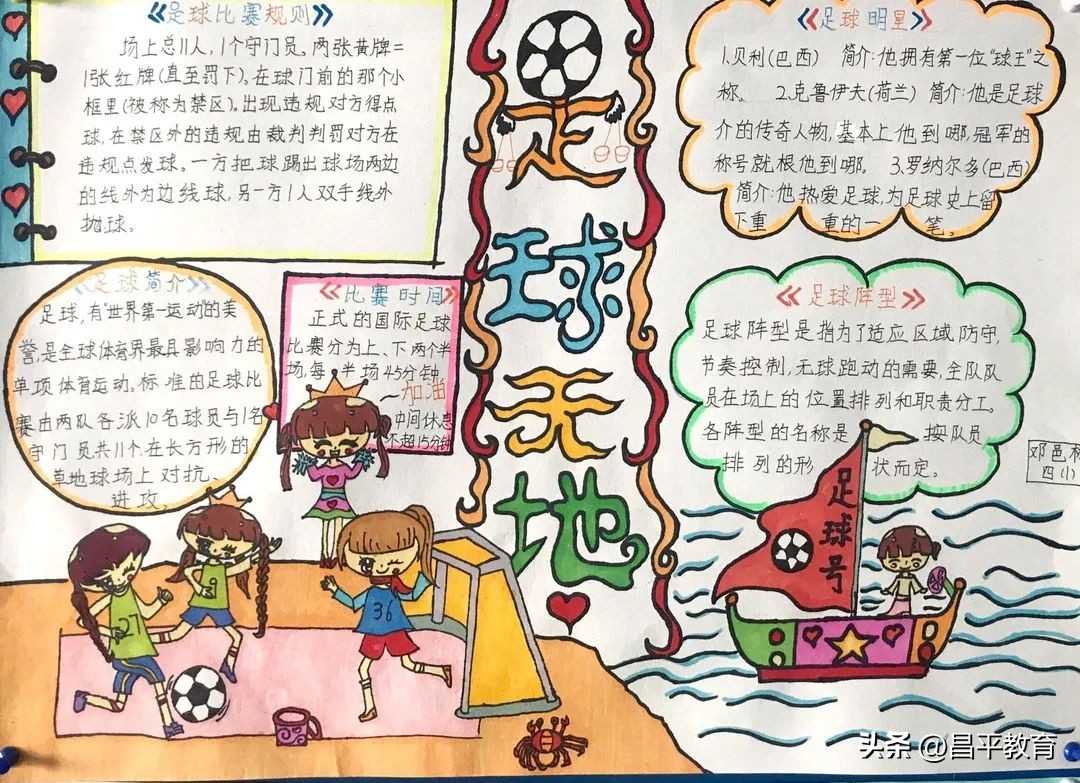 《足球比赛规则》
场上总11人,1个守门员。两张黄牌=
1张红牌(直至罚下)。在球门前的那个小
框里(被称为禁区)。出现违规对方得点
球,在禁区外的违规由裁判判罚对方在
违规点发球。一方把球踢出球场两边
的线外为边线球,另一方1人双手线外
抛球。
《足球简介》
足球,有"世界第一运动"的美
誉,是全球体育界最具影响力的
单项体育运动。标准的足球比
赛由两队各派10名球员与1名
守门员共11个在长方形的
草地球场上对抗、
进攻。
《比赛时间》
正式的国际足球
比赛分为上、下两个半
场,每半场45分钟
加油
中间休息
不超15分钟
足
球
天
地
《足球明星》
1.贝利(巴西) 简介:他拥有第一位"球王"之
称。 2.克鲁伊夫(荷兰) 简介:他是足球
界的传奇人物,基本上他到哪,冠军的
称号就根他到哪。 3.罗纳尔多(巴西)
简介:他热爱足球,为足球史上留
下重重的一笔。
《足球阵型》
足球阵型是指为了适应区域防守,
节奏控制,无球跑动的需要,全队队
员在场上的位置排列和职责分工。
各阵型的名称是按队员
排列的形状而定。
邓邑
四(1)
足球号
27
9
36
头条 @昌平教育